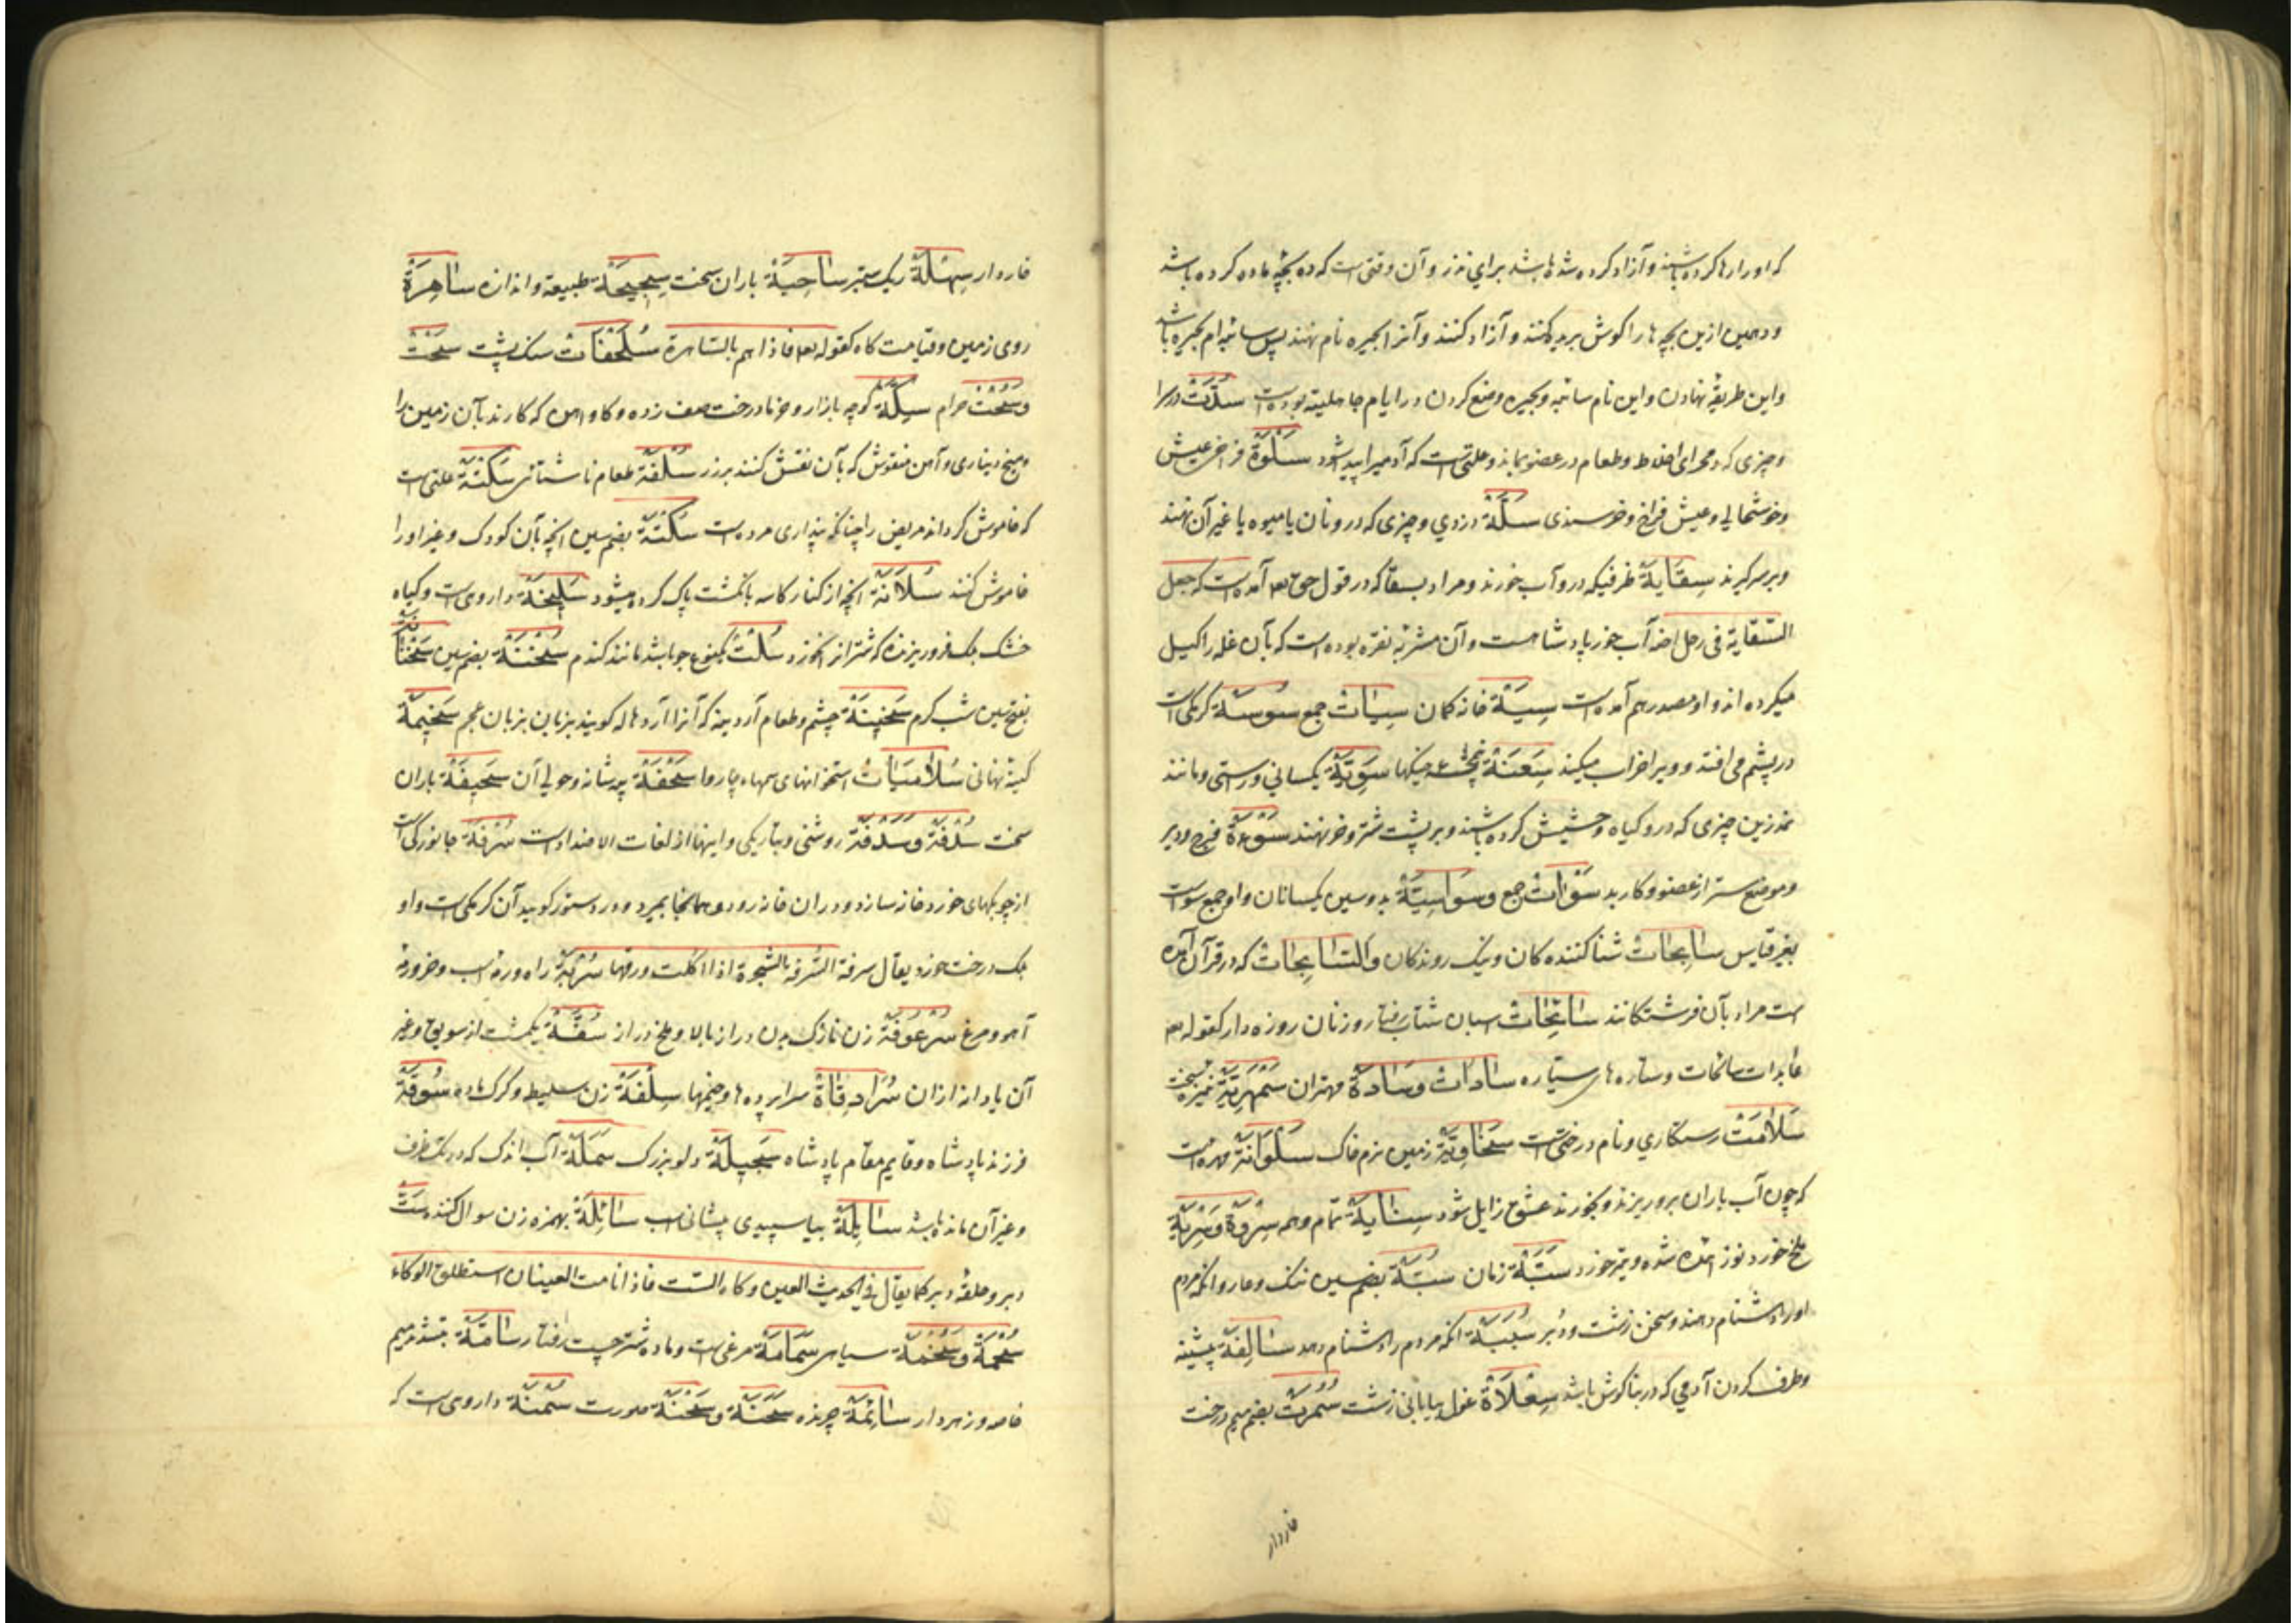 که او را رها کرده باشند و آزاد کرده شده باشد برای نذر و آن وقتی است که ده بچه ماده کرده باشد
و دهمین ازین بچه ها را گوش بریده کنند و آزاد کنند و آنرا بحیره نام نهند پس سائبه ام بحیره باشد
و این طریقه نهادن و این نام سائبه و بحیره وضع کردن در ایام جاهلیته بوده است سُدَّتْ در سرا
و چیزی که در مجرای اخلاط و طعام در عضو بماند و علتی است که آدمیرا پیدا شود سَلْوَة فراخی عیش
و خوشحالی و عیش فراخ و خورسندی سَلَّة دزدی و چیزی که درو نان یا میوه یا غیر آن نهند
و بر سر گیرند سِقَایَة ظرفیکه درو آب خورند و مراد بسقا که در قول حق تع آمده است که جعل
السّقایة فی رحل اخیه آب خور پادشاهست و آن مشربه نقره بوده است که بآن غله را کیل
میکرده اند و او مصدر هم آمده است سِیَة خانه کمان سِیَات جمع سُوسَة کرمکی است
در پشم می افتد و ویرا خراب میکند سَوِیَّة یکسانی و راستی و مانند
نمد زین چیزی که درو گیاه و حشیش کرده باشند و بر پشت شتر و خر نهند سَوْءَة فرج و دبر
و موضع ستر از عضو و کار بد سَوْآت جمع و سَوَاسِیَة بدو سین یکسانان و او جمع سواست
بغیر قیاس سَابِحَات شنا کننده کان و نیک روندکان و السَّابِحَات که در قرآن آمده
است مراد بآن فرشتگانند سَائِحَات اسبان شتاب رفتار و زنان روزه دار کقوله تع
عابدات سائحات و ستاره های سیّاره سَادَات وَ سَادَة مهتران سَمْهَرِیَّة نیزه سخت
سَلَامَتْ رستگاری و نام درختی است سَخَاوِیَّة زمین نرم خاک سَلْوَانَة مهره است
که چون آب باران برو ریزند و بخورند عشق زایل شود تمام و همه سِرْوَة وَ سِرْیَة
ملخ خورد نوز شده و تیر خورد سَبَّة زمان سُبَّة بضم سین ننگ و عار و آنکه مردم
او را دشنام دهند و سخن زشت و دُبر سُبَبَة آنکه مردم را دشنام دهد سَالِفَة پیشینه
و طرف گردن آدمی که در بناگوش باشد سِعْلَاة غول بیابانی زشت سَمُرَت بضم میم درخت
خاردار
خاردار سِهْلَة ریک ستبر سَاحِیَة باران سخت سَجِیحَة طبیعة و اندازه سَاهِرَة
روی زمین و قیامت گاه کقوله تع فاذا هم بالساهرة سُلَحْفَات سنگ پشت سُحْت
و سُحُت حرام سِکَّة کوچه بازار و خرما درخت صف زده و گاو اهن که کارند بآن زمین را
و میخ دیناری و آهن منقوش که بآن نقش کنند بر زر سُلْفَة طعام ناشتائی سَکْتَة علتی است
که خاموش گرداند مریض را چنانکه پنداری مرده است سُکْتَة بضم سین آنچه بآن کودک و غیر او را
خاموش کنند سُلَاتَة آنچه از کنار کاسه بانگشت پاک کرده میشود سَلِیخَة داروی است و گیاه
خشک برگ فرو ریزنده که شتر از آن خورد سُلْت یکنوع جو باشد مانند گندم سُخْنَة بضم سین
بفتح سین شب گرم سَخِینَة چشم و طعام آردینه که آنرا آرد هاله گویند بزبان عجم سَخِیمَة
کینه نهانی سُلَامَیَات استخوانهای سمهاء چاروا سَحْفَة پیه شانه و حوالی آن سَحِیفَة باران
سخت سُدْفَة وَ سَدْفَة روشنی و تاریکی و اینها از لغات الاضداد است سُرْفَة جانورکی است
از چوبکهای خورد خانه سازد و در آن خانه رود و همانجا بمیرد و در دستور گوید آن کرمکی است و او
برگ درخت خورد یقال سرفة السرفه الشجرة اذا اکلت ورقها سُرْبَة راه و رمه اسب و خر و رمه
آهو و مرغ سُرْعُوفَة زن نازک بدن دراز بالا و ملخ دراز سُفَّة یکمشت از سویق و غیر
آن یا دانه از آن سُرَادِقَاة سراپرده ها و خیمها سِلْفَة زن سلیط و گرگ ماده سُوقَة
فرزند پادشاه و قایم مقام پادشاه سَجِیلَة دلو بزرگ سَمَلَة آب اندک که در تک ظرف
و غیر آن مانده باشد سَایِلَة بیا سپیدی پیشانی اسب سَائِلَة بهمزه زن سوال کننده سَتْ
دبر و حلقه دبر کما یقال فی الحدیث العین وکاء السّت فاذا نامت العینان استطلق الوکاء
سُحْمَة وَ سیاهی سَمَامَة مرغی است و ماده شتر چست رفتار سَامَّة بتشدید میم
خاصه و زهردار سَائِمَة چرنده سَحَنَة وَ سَحْنَة صورت سُمْنَة داروی است که